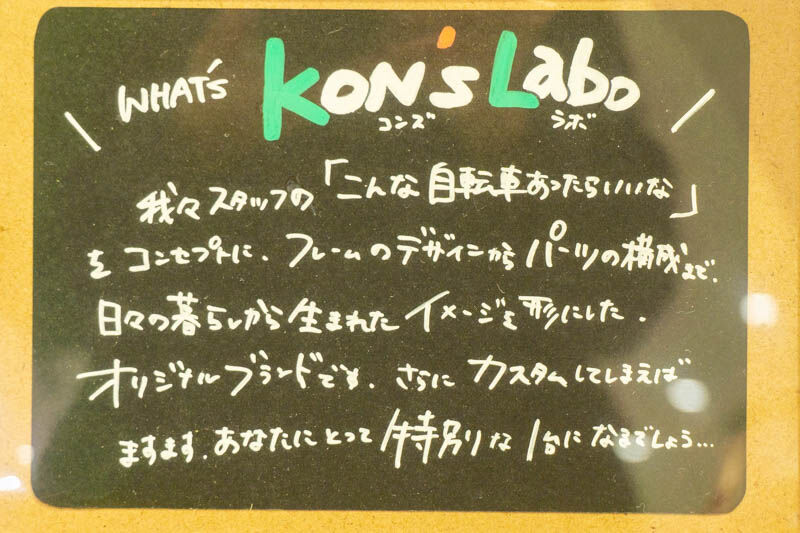 WHAT's KON's Labo
コンズ ラボ
我々スタッフの「こんな自転車あったらいいな」
をコンセプトに、フレームのデザインからパーツの構成まで、
日々の暮らしから生まれたイメージを形にした、
オリジナルブランドです。さらにカスタムしてしまえば
ますます、あなたにとって特別な1台になるでしょう…